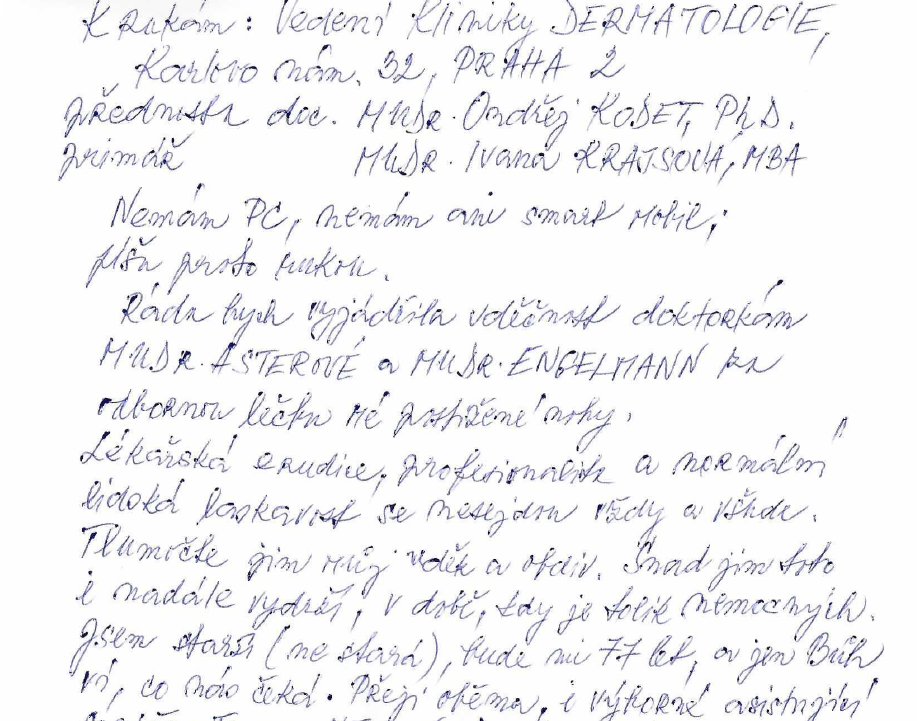 K rukám: Vedení Kliniky DERMATOLOGIE,
Karlovo nám. 32, PRAHA 2
přednosta doc. MUDr. Ondřej KODET, Ph.D.
primář MUDr. Ivana KRAJSOVÁ, MBA
Nemám PC, nemám ani smart mobil;
píšu proto rukou.
Ráda bych vyjádřila vděčnost doktorkám
MUDR. ASTEROVÉ a MUDR. ENGELMANN za
odbornou léčbu mé postižené nohy.
Lékařská erudice, profesionalita a normální
lidská laskavost se nesejdou vždy a všude.
Tlumočte jim můj vděk a obdiv. Snad jim toto
i nadále vydrží, v době, kdy je tolik nemocných.
Jsem starší (ne stará), bude mi 77 let, a jen Bůh
ví, co nás čeká. Přeji oběma, i výborné asistující